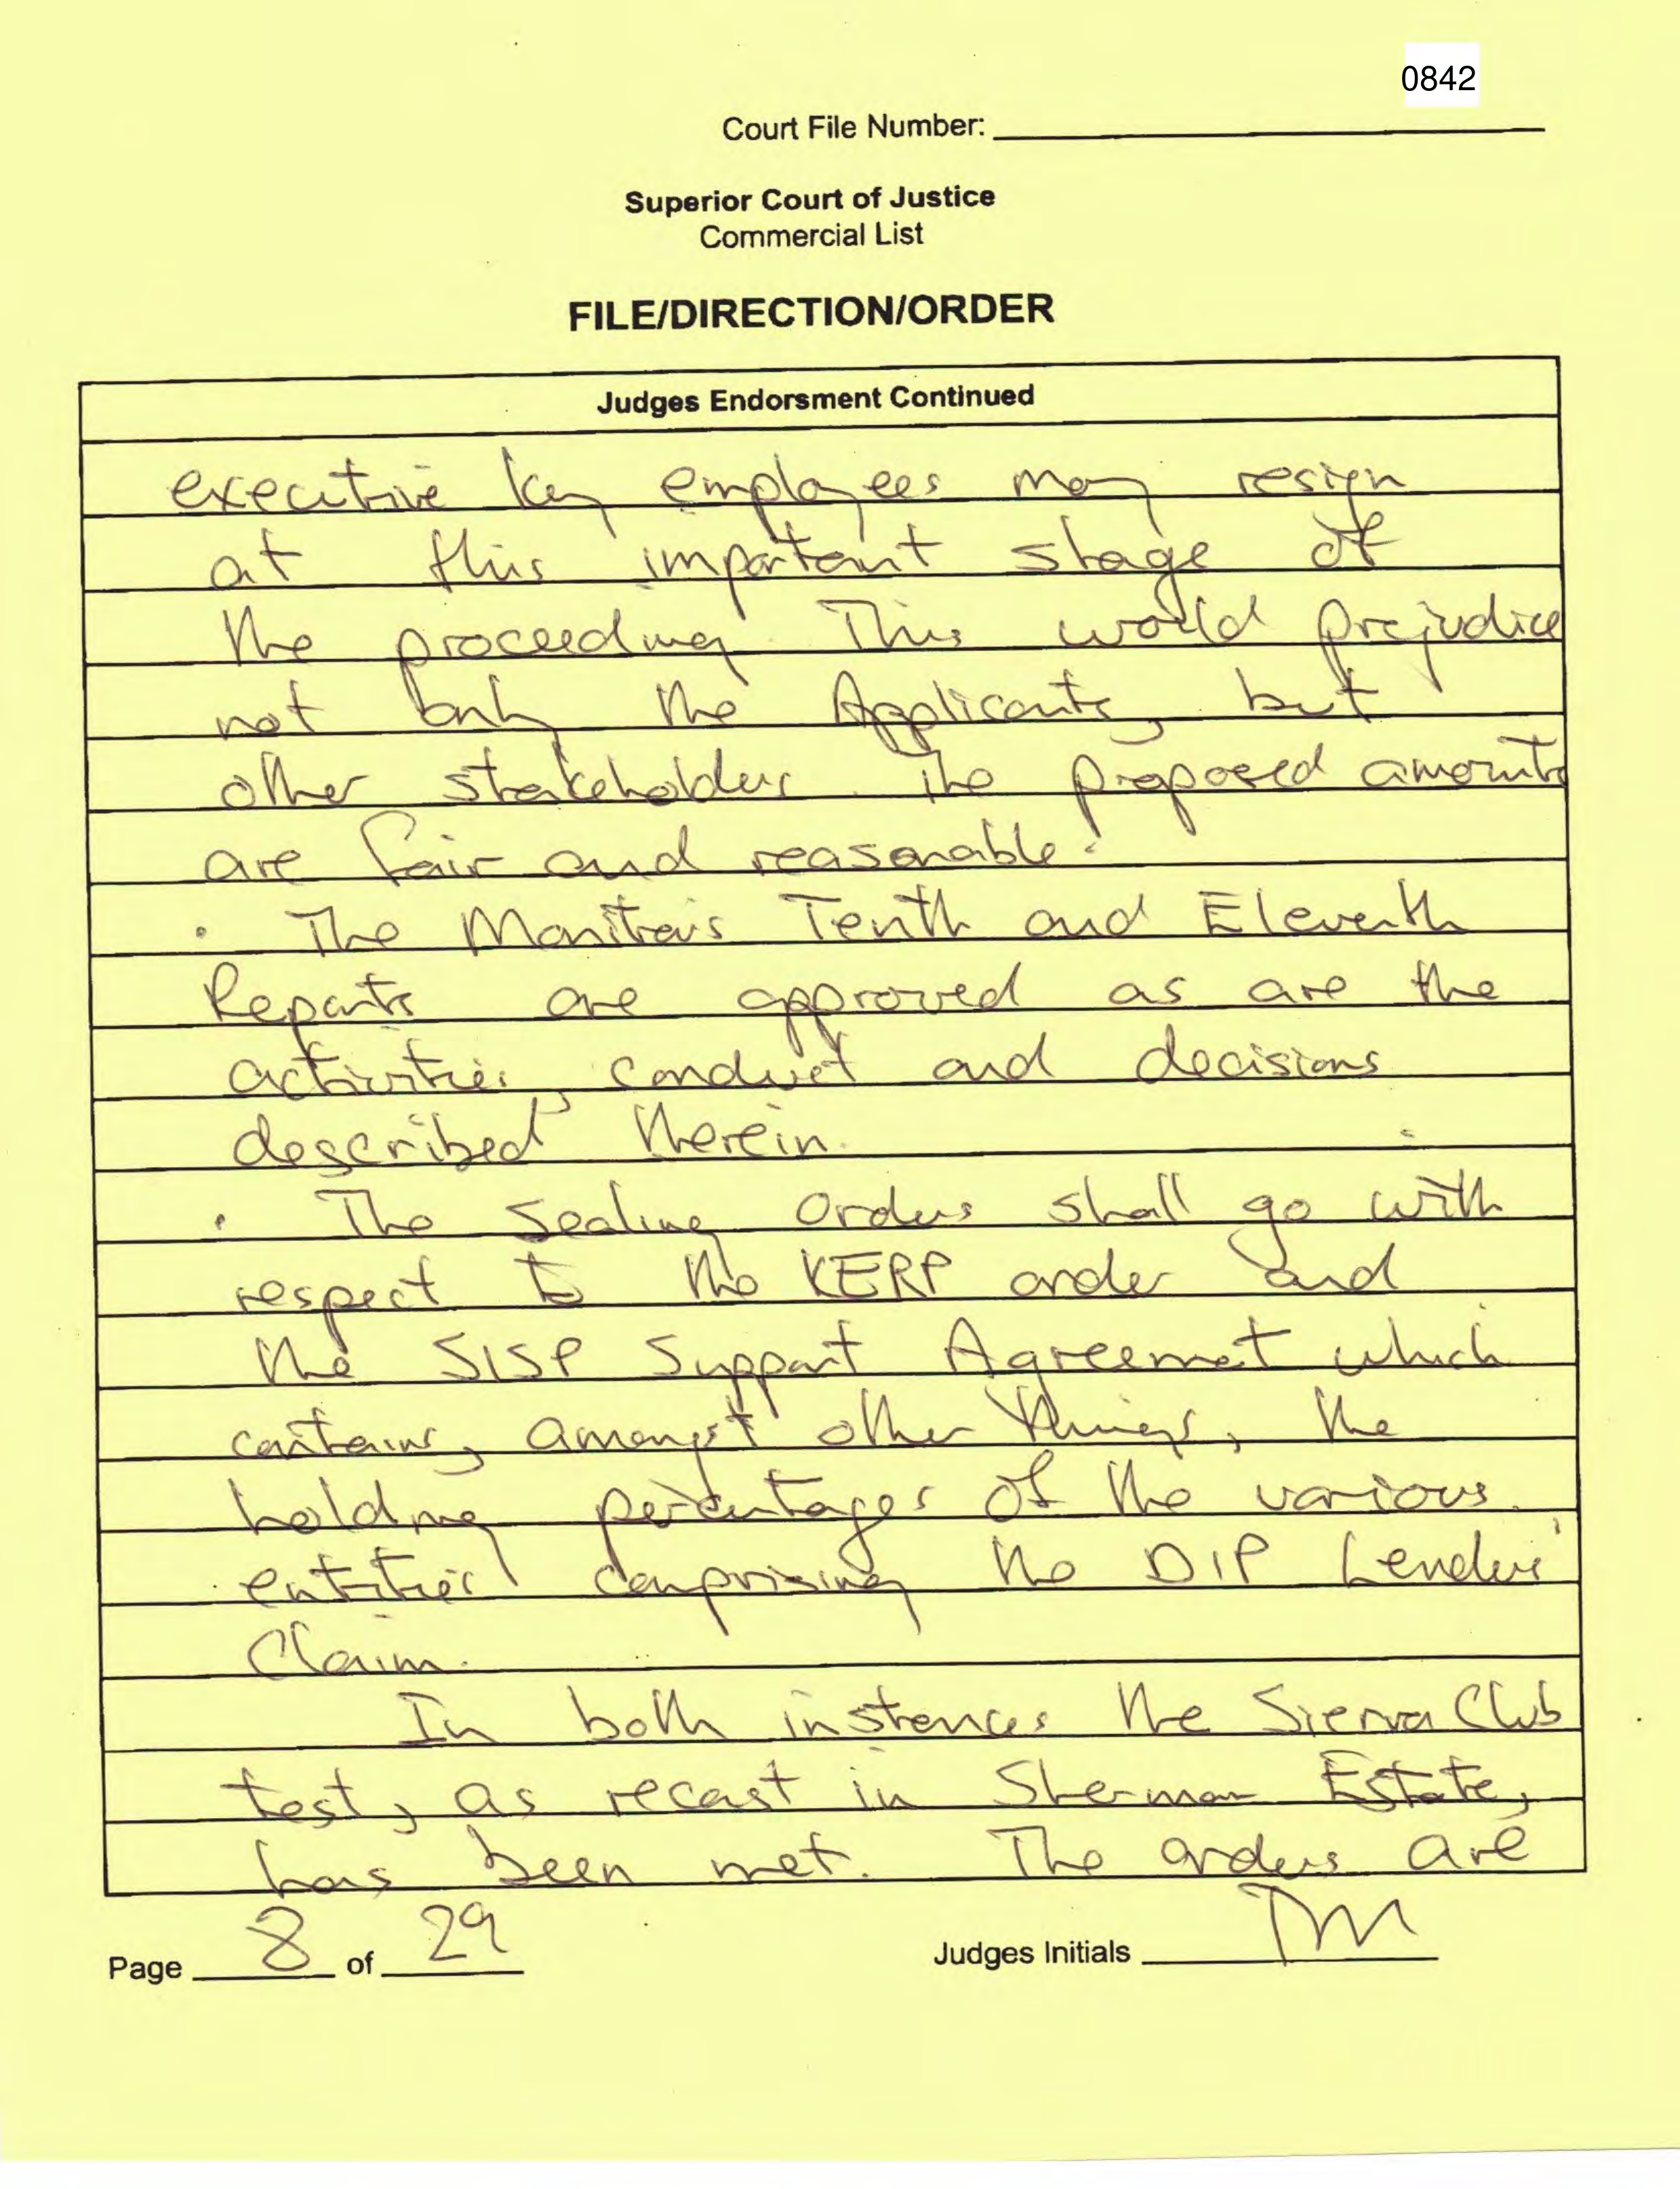 0842
Court File Number:
Superior Court of Justice
Commercial List
FILE/DIRECTION/ORDER
Judges Endorsment Continued
executive key employees may resign
at this important stage of
the proceeding. This would prejudice
not only the Applicants, but
other stakeholders. The proposed amounts
are fair and reasonable.
• The Monitor's Tenth and Eleventh
Reports are approved as are the
activities, conduct and decisions
described therein.
• The Sealing Orders shall go with
respect to the KERP order and
the SISP Support Agreemet which
contains, amongst other things, the
holding percentages of the various
entities comprising the DIP Lenders'
Claim.
In both instances the Sierra Club
test, as recast in Sherman Estate,
has been met. The orders are
Page 8 of 29
Judges Initials TM